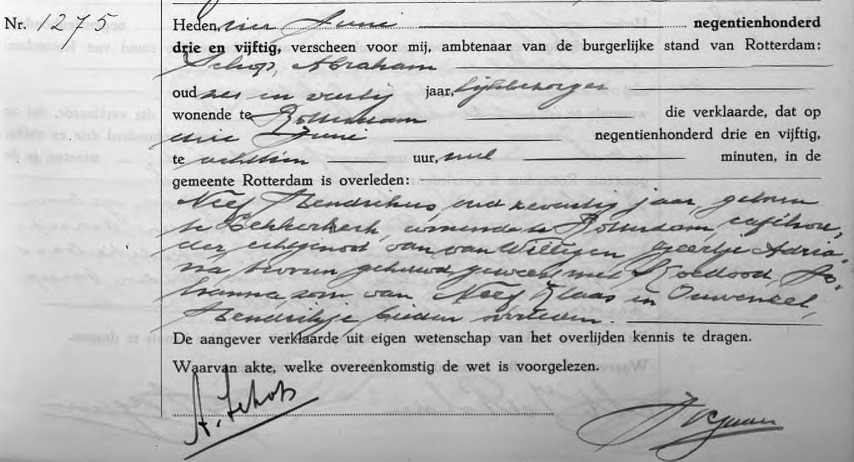 Nr. 1275
Heden, vier Juni negentienhonderd
drie en vijftig, verscheen voor mij, ambtenaar van de burgerlijke stand van Rotterdam:
Schop, Abraham
oud zes en veertig jaar, lijkbezorger
wonende te Rotterdam die verklaarde, dat op
drie Juni negentienhonderd drie en vijftig,
te achttien uur, nul minuten, in de
gemeente Rotterdam is overleden:
Neef Hendrikus oud zeventig jaar, geboren
te Lekkerkerk wonende te Rotterdam, caféhou-
der, echtgenoot van van Wiltigen, Geertje Adria-
na, tevoren gehuwd geweest met Roodood, Jo-
hanna zoon van Neef, Klaas en Ouweneel,
Hendrikje beiden overleden.
De aangever verklaarde uit eigen wetenschap van het overlijden kennis te dragen.
Waarvan akte, welke overeenkomstig de wet is voorgelezen.
A. Schop